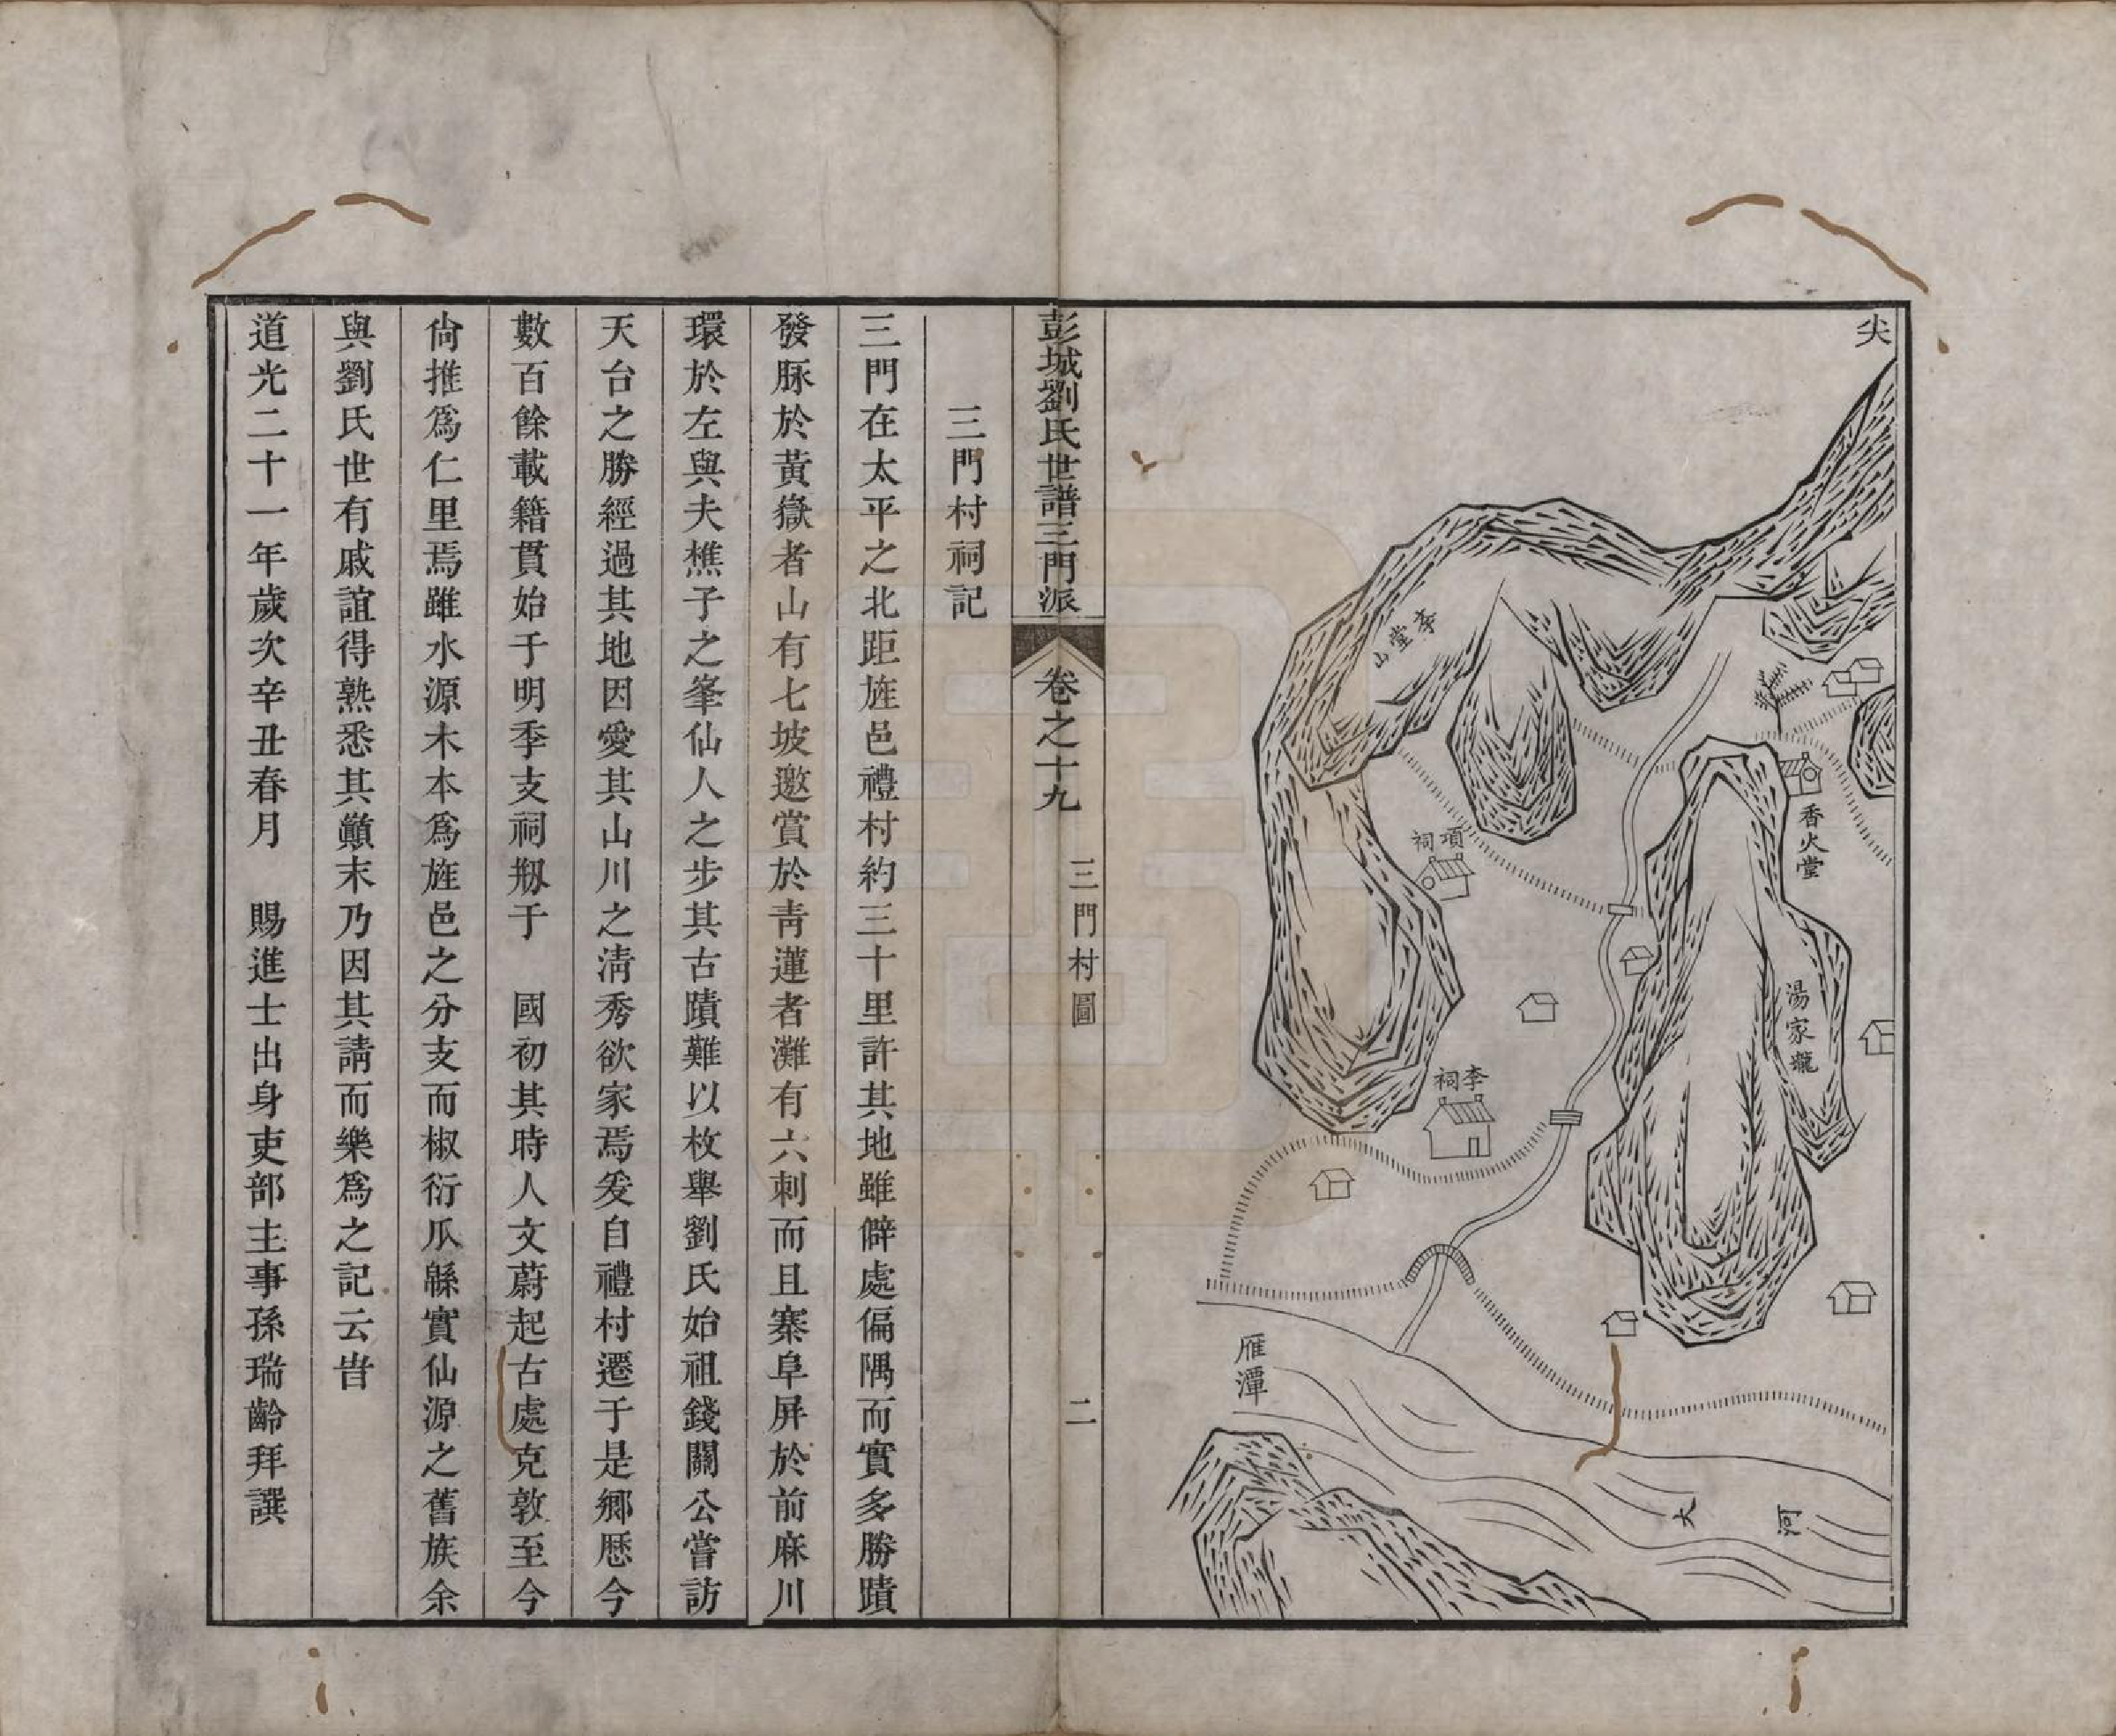 尖
李堂山
香火堂
項祠
湯家壠
李祠
雁潭
大河
彭城劉氏世譜三門派
卷之十九
三門村圖
二
三門村祠記
三門在太平之北距旌邑禮村約三十里許其地雖僻處偏隅而實多勝蹟
發脈於黃嶽者山有七坡邀賞於靑蓮者灘有六刺而且寨阜屏於前麻川
環於左與夫樵子之峯仙人之步其古蹟難以枚舉劉氏始祖錢關公嘗訪
天台之勝經過其地因愛其山川之淸秀欲家焉爰自禮村遷于是鄉歷今
數百餘載籍貫始于明季支祠剏于　國初其時人文蔚起古處克敦至今
尙推爲仁里焉雖水源木本爲旌邑之分支而椒衍瓜緜實仙源之舊族余
與劉氏世有戚誼得熟悉其顚末乃因其請而樂爲之記云旹
道光二十一年歲次辛丑春月　賜進士出身吏部主事孫瑞齡拜譔